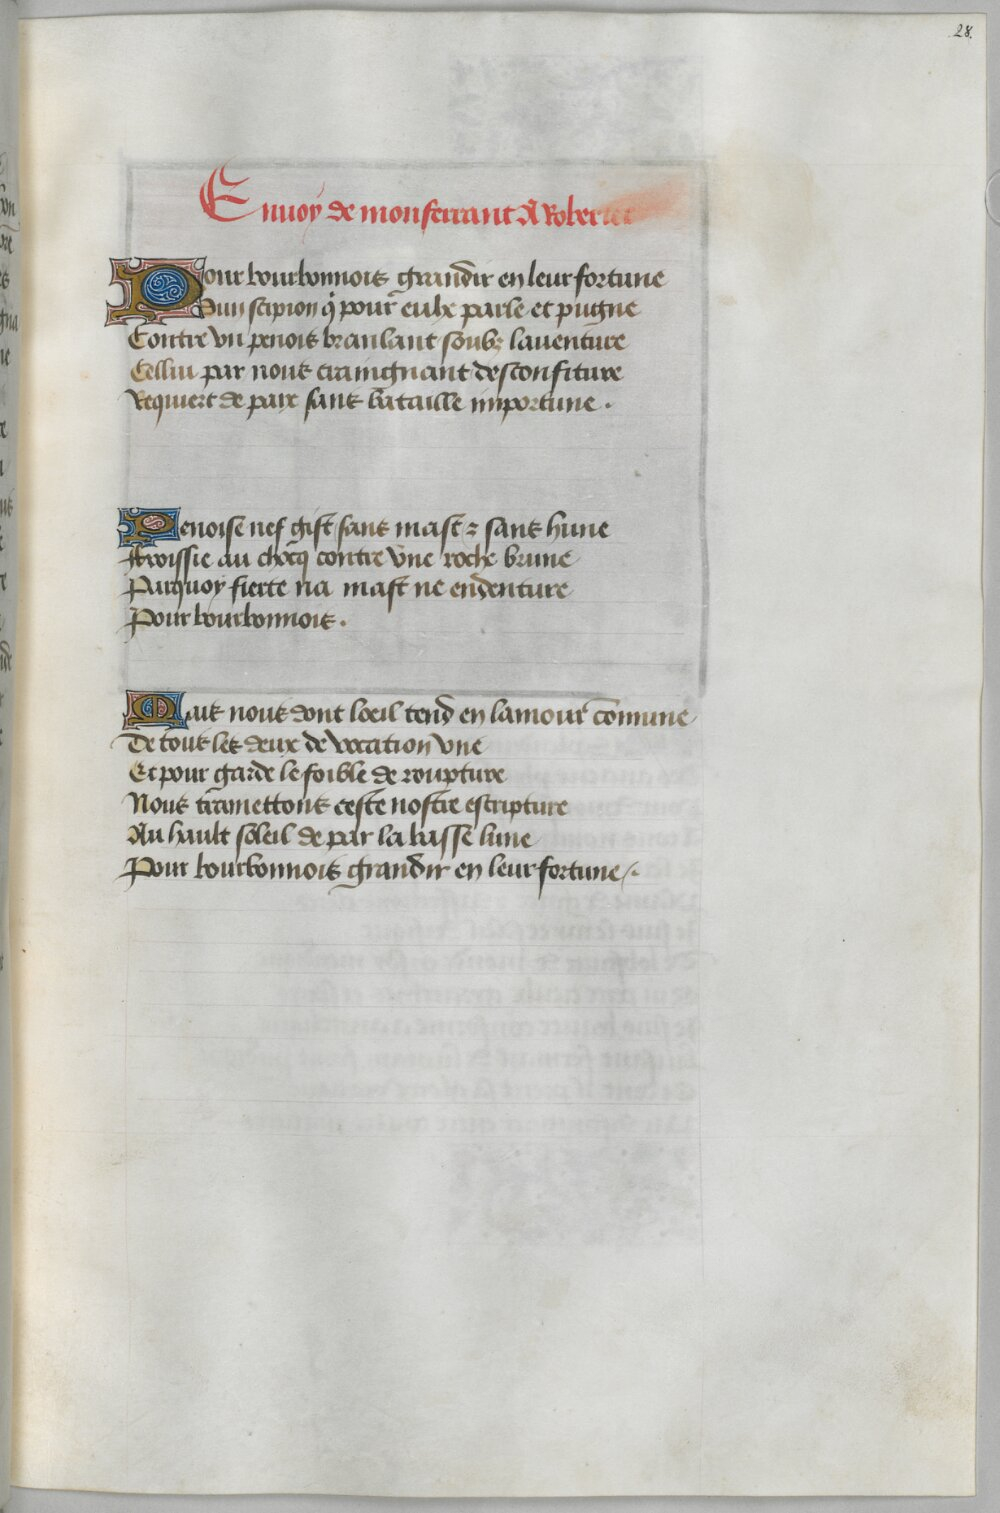 28.
Enuoy de monferrant A Robertet
Pour bourbonnois grandir en leur fortune
Dun scipion q̄ pour eulx parle et pugne
Contre vn penois branlant soubz lauenture
Cellui par nous craingnant desconfiture
Requiert de paix sans bataille importune .
Penoise nef gist sans mast z sans hune
Froissie au chocq contre vne roche brune
Parquoy fierte na mast ne endenture
Pour bourbonnois .
Mais nous dont loeil tend en lamour cōmune
De tous les deux de vocation vne
Et pour garde le foible de roupture
Nous trāmettons ceste nostre escripture
Au hault soleil de par la basse lune
Pour bourbonnois grandir en leur fortune /.